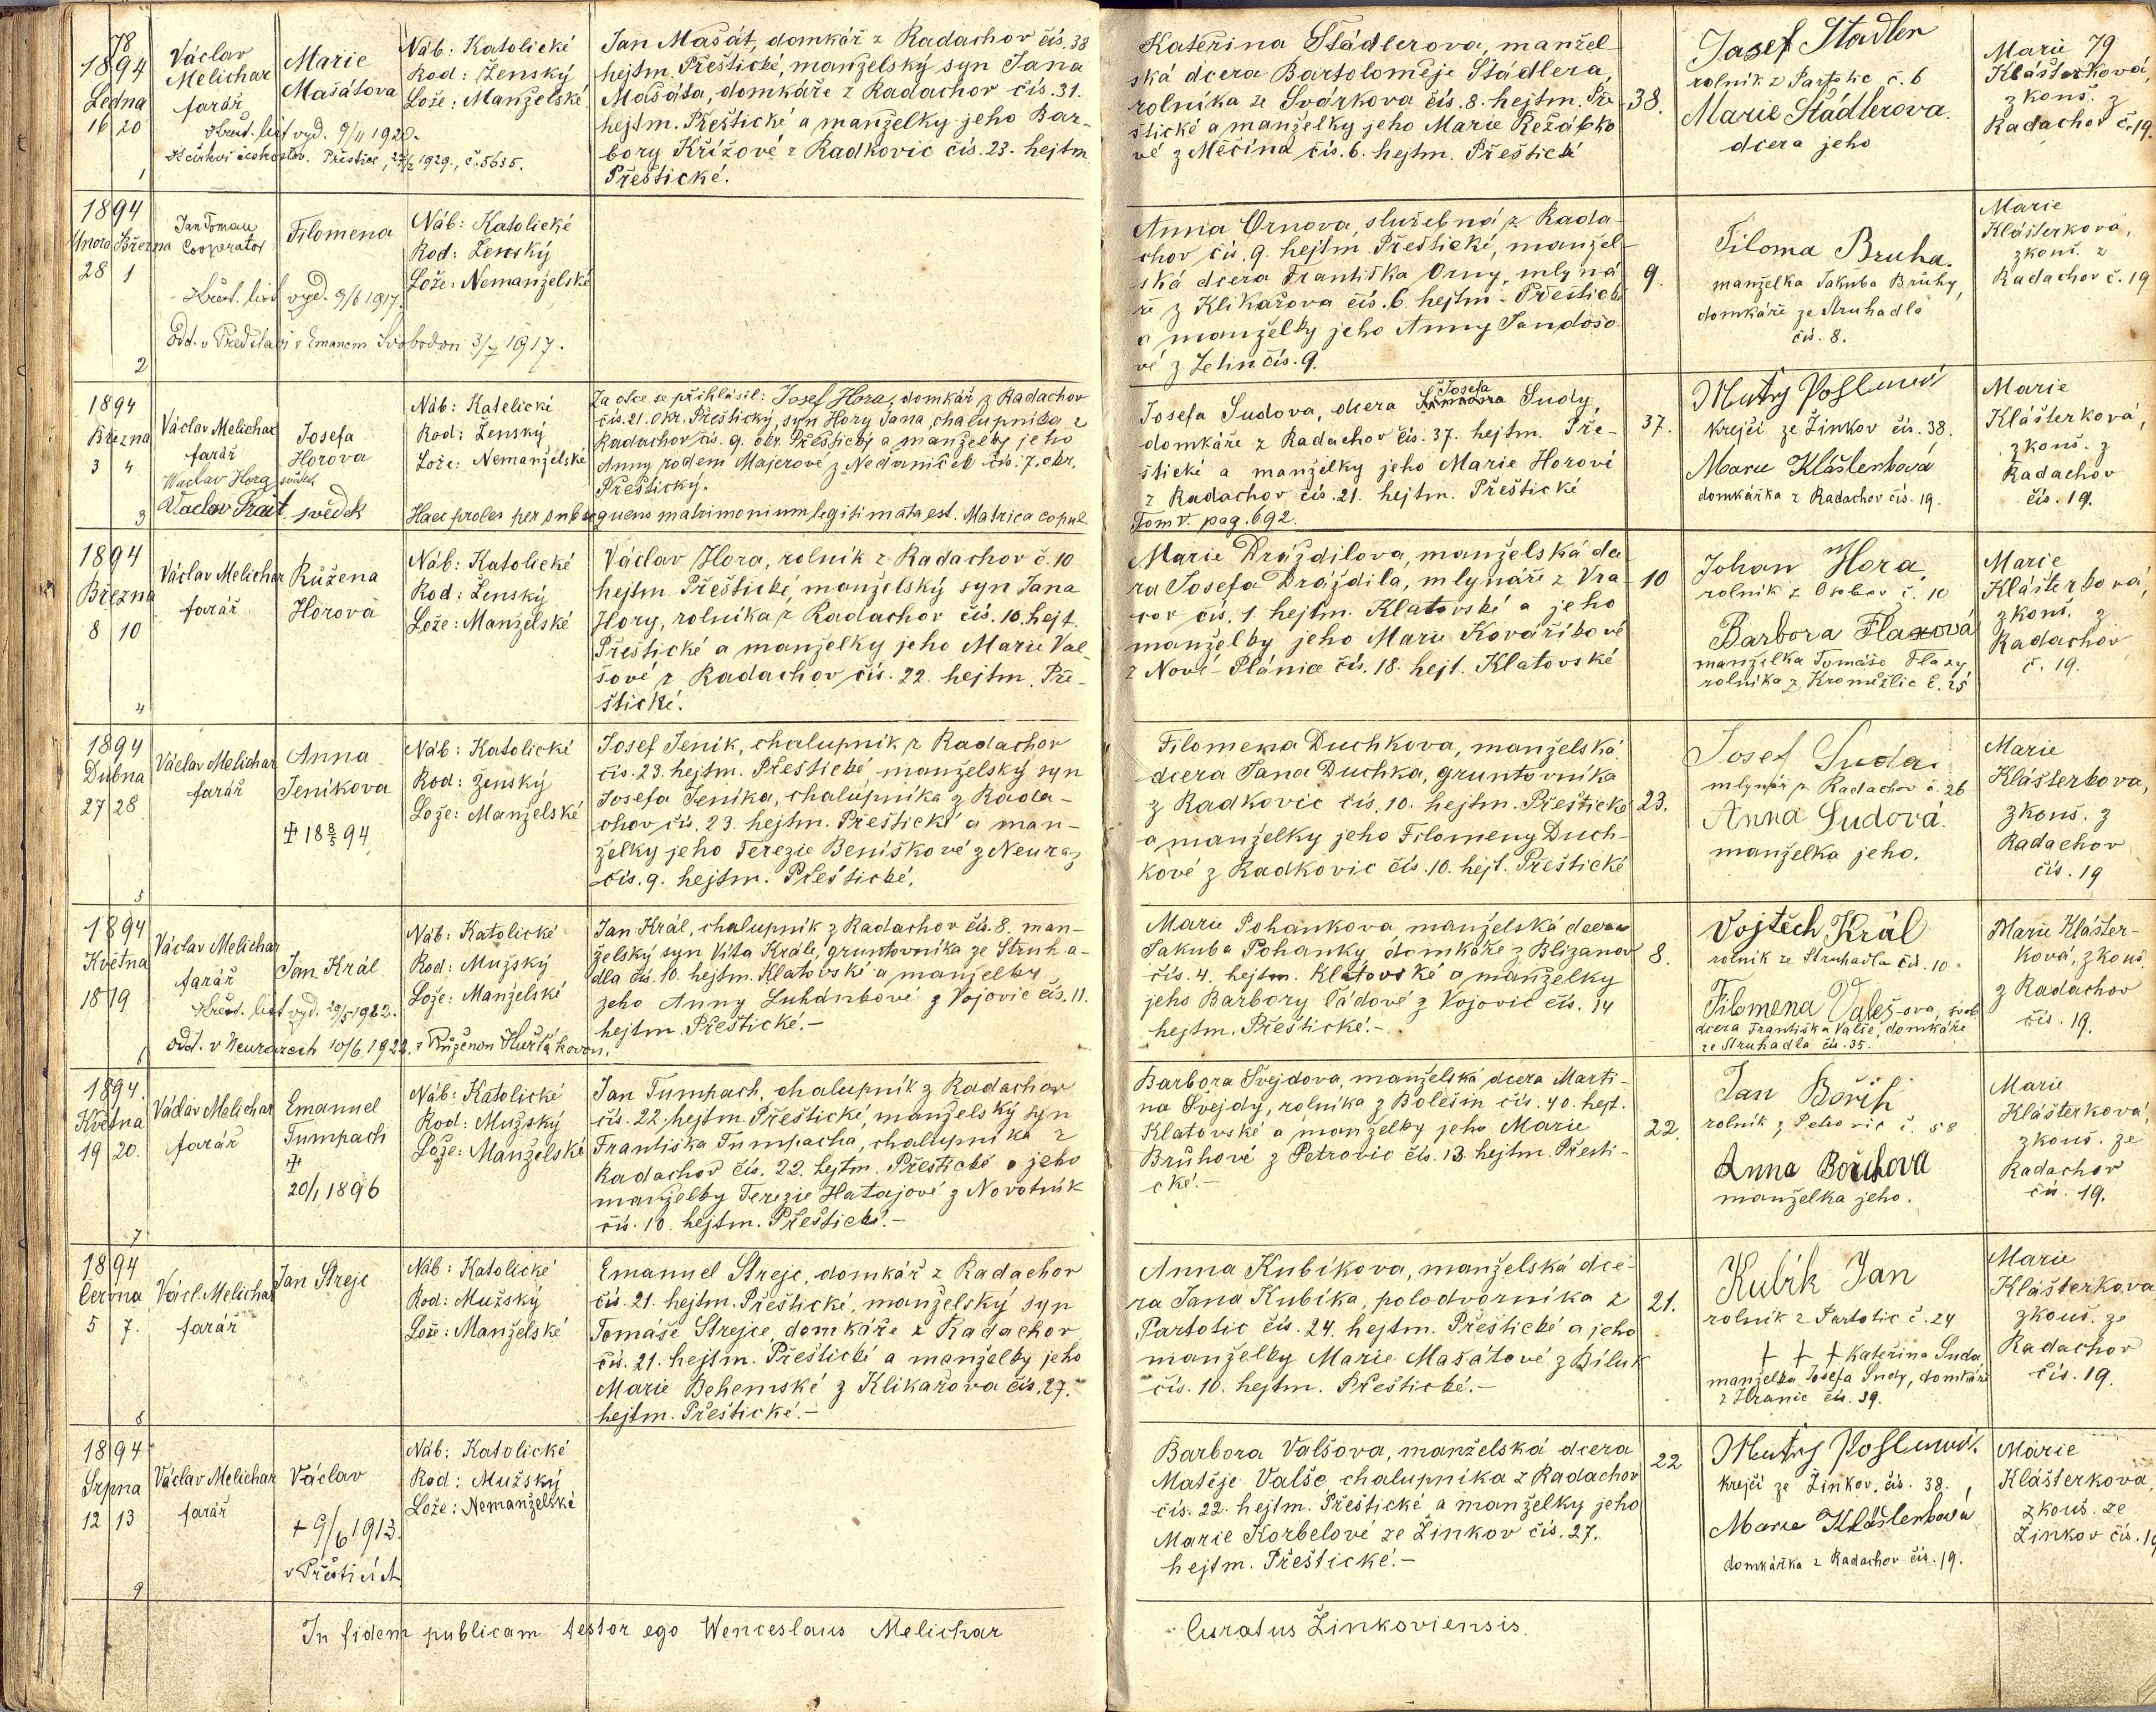 78
1894
Ledna
16 20
1
Václav
Melichar
farář
Křest. list vyd. 9/4 1929.
Přeštice, 1929., č. 5635.
Marie
Mašátova
Náb: Katolické
Rod: Ženský
Lože: Manželské
Jan Mašát, domkář z Radachov čís. 38
hejtm. Přeštické, manželský syn Jana
Mašáta, domkáře z Radachov čís. 31.
hejtm. Přeštické a manželky jeho Bar-
bory Křížové z Radkovic čís. 23. hejtm
Přeštické.
Kateřina Štádlerova, manžel-
ská dcera Bartoloměje Štádlera,
rolníka ze Svárkova čís. 8. hejtm. Pře-
štické a manželky jeho Marie Řežábko-
vé z Měčína čís. 6. hejtm. Přeštické
38.
Josef Stadler
rolník z Partotic č. 6
Marie Städlerova.
dcera jeho
79
Marie
Klášterková
zkouš. z
Radachov č. 19
1894
Února Března
28 1
2
Jan Toman
Cooperator
Křest. list vyd. 9/6 1917.
Odd. v Předslavi s Emanem Svobodou 3/7 1917.
Filomena
Náb: Katolické
Rod: Ženský
Lože: Nemanželské
Anna Ornova, služebná z Rada-
chov čís. 9. hejtm Přeštické, manžel-
ská dcera Františka Orny, mlyná-
ře z Klikařova čís. 6. hejtm. Přeštické
a manželky jeho Anny Jandošo-
vé z Letin čís. 9.
9.
Filoma Bruha.
manželka Jakuba Brůhy,
domkáře ze Struhadla
čís. 8.
Marie
Klášterková,
zkouš. z
Radachov č. 19
1894
Března
3 4
3
Václav Melichar
farář
Waclav Hora svědek
Vaclav Trait, svědek
Josefa
Horova
Náb: Katolické
Rod: Ženský
Lože: Nemanželské
Za otce se přihlásil: Josef Hora, domkář z Radachov
čís. 21. okr. Přeštický, syn Hory Jana, chalupníka z
Radachov čís. 9. okr. Přeštický a manželky jeho
Anny rodem Majerové z Nedaniček čís. 7. okr.
Přeštický.
Haec proles per subsequens matrimonium legitimata est. Matrica copul.
Tom V. pag. 692.
Josefa Sudova, dcera Josefa Sudy,
domkáře z Radachov čís. 37. hejtm. Pře-
štické a manželky jeho Marie Horové
z Radachov čís. 21. hejtm. Přeštické
37.
krejčí ze Žinkov čís. 38.
Marie Klášterková
domkářka z Radachov čís. 19.
Marie
Klášterková,
zkouš. z
Radachov
čís. 19.
1894
Března
8 10
4
Václav Melichar
farář
Růžena
Horova
Náb: Katolické
Rod: Ženský
Lože: Manželské
Václav Hora, rolník z Radachov č. 10
hejtm. Přeštické, manželský syn Jana
Hory, rolníka z Radachov čís. 10. hejt.
Přeštické a manželky jeho Marie Val-
šové z Radachov čís. 22. hejtm. Pře-
štické.
Marie Drázdilova, manželská dce-
ra Josefa Drázdila, mlynáře z Vra-
cov čís. 1. hejtm. Klatovské a jeho
manželky jeho Marie Kováříkové
z Nové-Plánice čís. 18. hejt. Klatovské
10
Johan Hora,
rolník z Osobov č. 10
Barbora Flaxová
manželka Tomáše Flaxy
rolníka z Kroměžlic č. 25
Marie
Klášterková,
zkouš. z
Radachov
č. 19.
1894
Dubna
27 28
5
Václav Melichar
farář
Anna
Jeníkova
✝ 18 8/5 94
Náb: Katolické
Rod: Ženský
Lože: Manželské
Josef Jeník, chalupník z Radachov
čís. 23. hejtm. Přeštické manželský syn
Josefa Jeníka, chalupníka z Rada-
chov čís. 23. hejtm. Přeštické a man-
želky jeho Terezie Beníškové z Neuraz
čís. 9. hejtm. Přeštické.
Filomena Duchkova, manželská
dcera Jana Duchka, gruntovníka
z Radkovic čís. 10. hejtm. Přeštické
a manželky jeho Filomeny Duch-
kové z Radkovic čís. 10. hejt. Přeštické
23.
Josef Suda.
mlynář z Radachov č. 26
Anna Sudová.
manželka jeho.
Marie
Klášterkova,
zkouš. z
Radachov
čís. 19
1894
Května
18 19
6
Václav Melichar
farář
Křest. list vyd. 20/5 1922.
Odd. v Neurazech 10/6 1922. s Růženou Huřťákovou.
Jan Král
Náb: Katolické
Rod: Mužský
Lože: Manželské
Jan Král, chalupník z Radachov čís. 8. man-
želský syn Víta Krále, gruntovníka ze Struha-
dla čís. 10. hejtm. Klatovské a manželky
jeho Anny Luhánkové z Vojovic čís. 11.
hejtm. Přeštické.-
Marie Pohankova manželská dcera
Jakuba Pohanky domkáře z Blizanov
čís. 4. hejtm. Klatovské a manželky
jeho Barbory Čádové z Vojovic čís. 14
hejtm. Přeštické.-
8.
Vojtěch Král
rolník ze Struhadla čís. 10.
Filomena Valeš-ova, svob.
dcera Františka Valše, domkáře
ze Struhadla čís. 35.
Marie Klášter-
ková, zkouš
z Radachov
čís. 19.
1894.
Května
19 20.
7
Václav Melichar
farář
Emanuel
Tumpach
✝
20/1 1896
Náb: Katolické
Rod: Mužský
Lože: Manželské
Jan Tumpach, chalupník z Radachov
čís. 22. hejtm. Přeštické, manželský syn
Františka Tumpacha, chalupníka z
Radachov čís. 22. hejtm. Přeštické a jeho
manželky Terezie Hatajové z Novotník
čís. 10. hejtm. Přeštické.-
Barbora Švejdova, manželská dcera Marti-
na Švejdy, rolníka z Bolešin čís. 40. hejt.
Klatovské a manželky jeho Marie
Brůhové z Petrovic čís. 13 hejtm. Přešti-
cké.-
22.
Jan Bořík
rolník z Petrovic č. 58
Anna Bořikova
manželka jeho.
Marie
Klášterková,
zkouš. ze
Radachov
čís. 19.
1894
Června
5 7.
8
Václ. Melichar
farář
Jan Strejc
Náb: Katolické
Rod: Mužský
Lože: Manželské
Emanuel Strejc, domkář z Radachov
čís. 21. hejtm. Přeštické, manželský syn
Tomáše Strejce, domkáře z Radachov
čís. 21. hejtm. Přeštické a manželky jeho
Marie Behemské z Klikařova čís. 27.
hejtm. Přeštické.-
Anna Kubíkova, manželská dce-
ra Jana Kubíka, polodvorníka z
Partotic čís. 24. hejtm. Přeštické a jeho
manželky Marie Mašátové z Bíluk
čís. 10. hejtm. Přeštické.-
21.
Kubík Jan
rolník z Partotic č. 24
+ + + Kateřina Suda,
manželka Josefa Sudy, domkáře
z Hranic čís. 39.
Marie
Klášterkova
zkouš. ze
Radachov
čís. 19.
1894
Srpna
12 13
9
Václav Melichar
farář
Václav
+ 9/6 1913.
v Přešticích
Náb: Katolické
Rod: Mužský
Lože: Nemanželské
Barbora Valšova, manželská dcera
Matěje Valše, chalupníka z Radachov
čís. 22. hejtm. Přeštické a manželky jeho
Marie Korbelové ze Žinkov čís. 27.
hejtm. Přeštické.-
22
krejčí ze Žinkov, čís. 38.
Marie Klášterkova
domkářka z Radachov čís. 19.
Marie
Klášterkova,
zkouš. ze
Žinkov čís. 19
In fidem publicam testor ego Wenceslaus Melichar
Curatus Žinkoviensis.